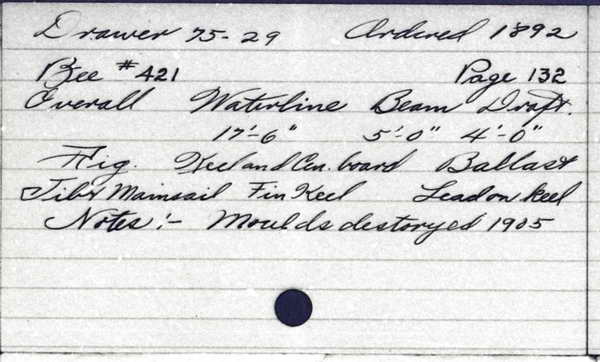 Drawer 75-29 Ordered 1892
Bee #421 Page 132
Overall Waterline Beam Draft.
17'-6" 5'-0" 4'-0"
Rig. Keel and Cen. board Ballast
Jib & Mainsail Fin Keel Lead on keel
Notes:- Moulds destoryed 1905